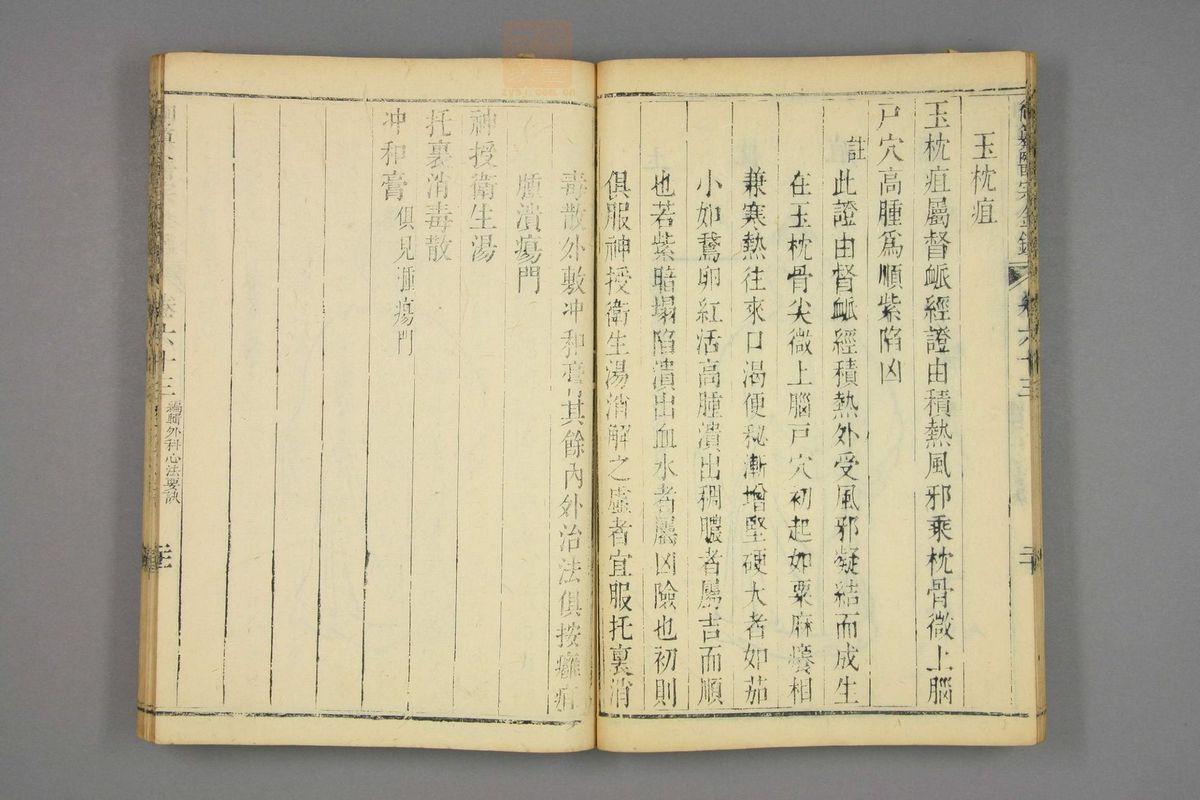 玉枕疽
玉枕疽屬督䘑經證由積熱風邪乘枕骨微上腦
戸穴高腫爲順紫陷凶
註
此證由督䘑經積熱外受風邪凝結而成生
在玉枕骨尖微上腦戸穴初起如粟麻癢相
兼寒熱往來口渴便秘漸增堅硬大者如茄
小如鵞卵紅活高腫潰出稠膿者屬吉而順
也若紫暗塌陷潰出血水者屬凶險也初則
俱服神授衛生湯消解之虛者宜服托裏消
毒散外敷冲和膏其餘內外治法俱按癰疽
腫潰瘍門
神授衛生湯
托裏消毒散
冲和膏 俱見腫瘍門
卷六十三 編輯外科心法要訣
zysj.com.cn